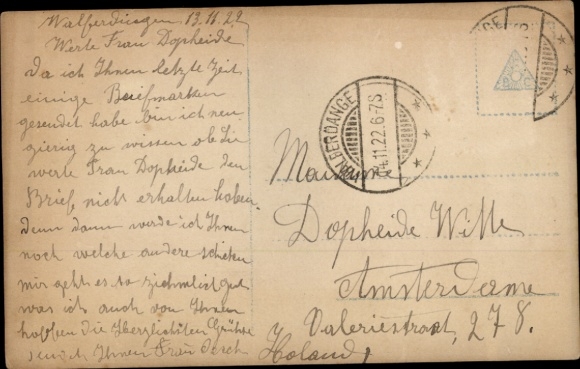 Walferdingen 13.11.22
Werte Frau Dopheide
Da ich Ihnen letzte Zeit
einige Briefmarken
gesendet habe bin ich neu-
gierig zu wissen ob Sie
werte Frau Dopheide den
Brief nicht erhalten haben.
denn dann werde ich Ihnen
noch welche andere schicken
mir geht es so ziehmlich gut
was ich auch von Ihnen
hoffen die Herzlichsten Grüsse
sendet Ihnen Frau
WALFERDANGE
14.11.22.6-7S
Madame
Dopheide Witte
Amsterdame
Valeriestraat, 278.
Holand,